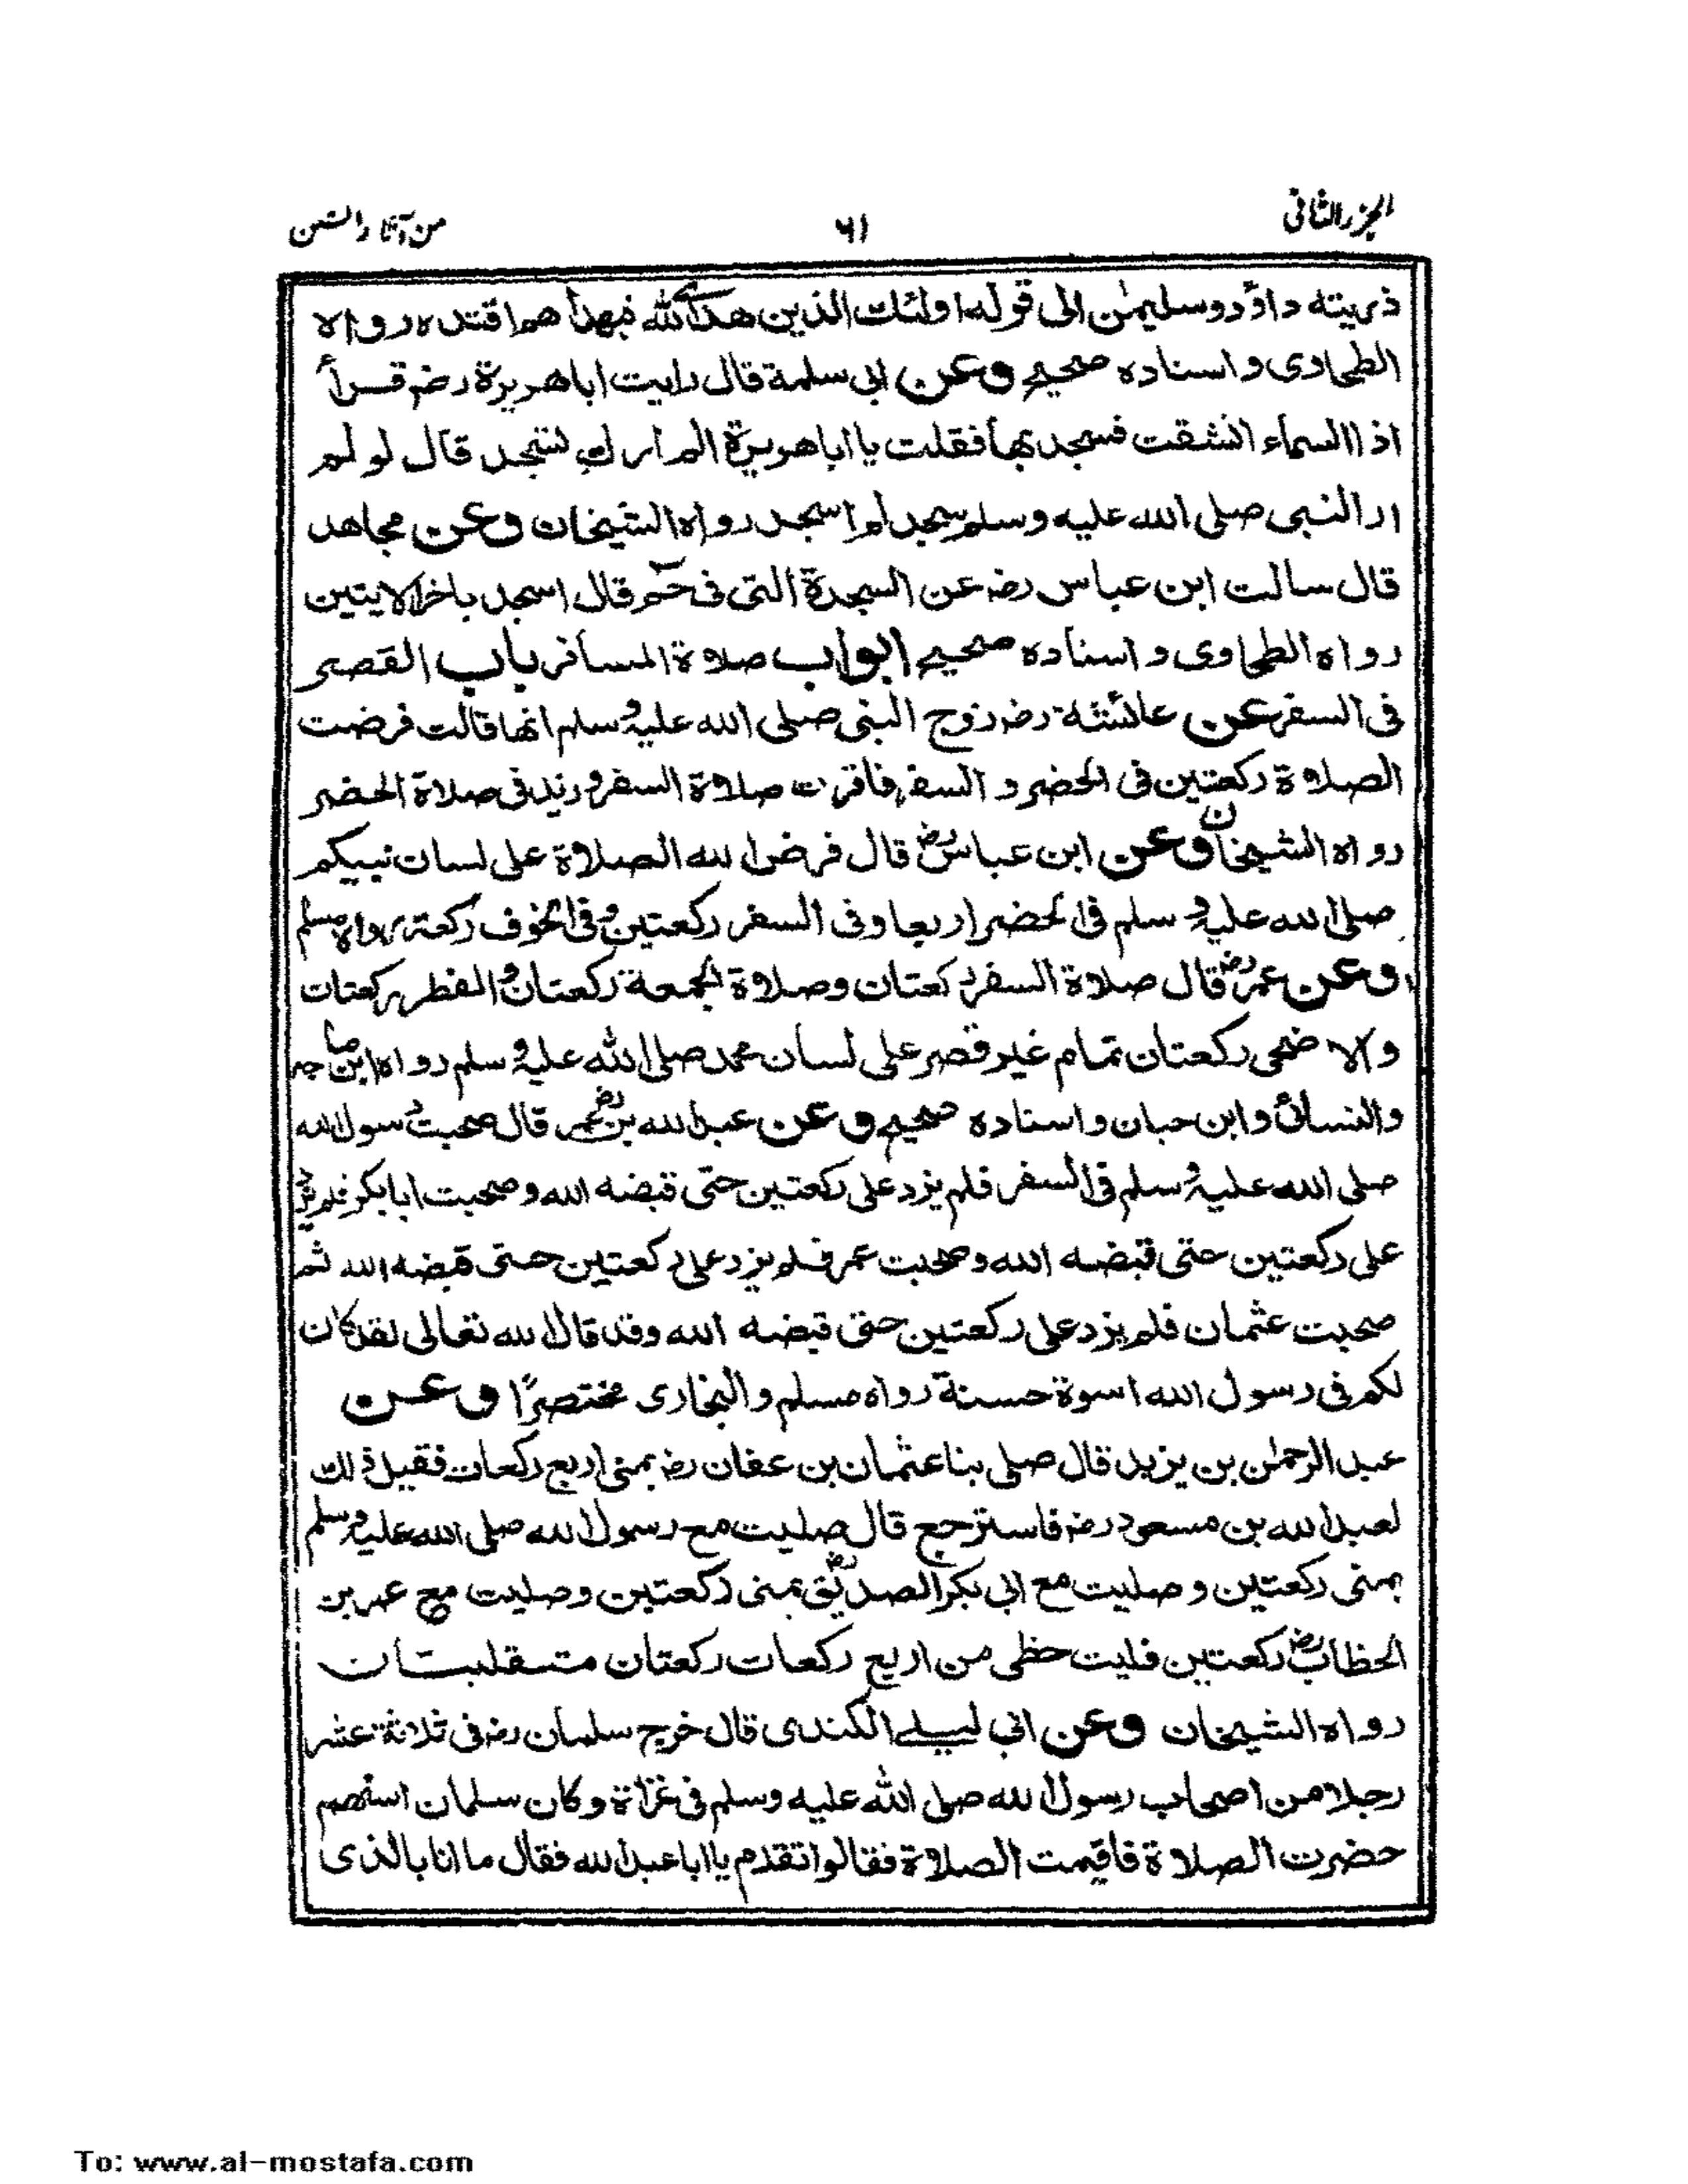 الجزء الثانی
٦١
من آثار السنن
ذريته داؤد وسليمٰن الى قوله اولئك الذين هدى الله فبهداهم اقتده رواه
الطحاوى واسناده صحيح وعن ابى سلمة قال رايت اباهريرة رضـ قرأ
اذا السماء انشقت فسجد بها فقلت يا اباهريرة الم ارك تسجد قال لو لم
ار النبى صلى الله عليه وسلم سجد لم اسجد رواه الشيخان وعن مجاهد
قال سالت ابن عباس رضـ عن السجدة التى فى حٰم قال اسجد باخر الايتين
رواه الطحاوى واسناده صحيح ابواب صلاة المسافر باب القصر
فى السفر عن عائشة رضـ زوج النبى صلى الله عليه وسلم انها قالت فرضت
الصلاة ركعتين فى الحضر و السفر فاقرت صلاة السفر وزيد فى صلاة الحضر
رواه الشيخان وعن ابن عباس رضـ قال فرض الله الصلاة على لسان نبيكم
صلى الله عليه وسلم فى الحضر اربعا وفى السفر ركعتين وفى الخوف ركعة رواه مسلم
وعن عمر رضـ قال صلاة السفر ركعتان وصلاة الجمعة ركعتان والفطر ركعتان
والاضحى ركعتان تمام غير قصر على لسان محمد صلى الله عليه وسلم رواه ابن ماجه
والنسائى وابن حبان واسناده صحيح وعن عبد الله بن عمر رضـ قال صحبت رسول الله
صلى الله عليه وسلم فى السفر فلم يزد على ركعتين حتى قبضه الله وصحبت ابابكر فلم يزد
على ركعتين حتى قبضه الله وصحبت عمر فلم يزد على ركعتين حتى قبضه الله ثم
صحبت عثمان فلم يزد على ركعتين حتى قبضه الله وقد قال الله تعالى لقد كان
لكم فى رسول الله اسوة حسنة رواه مسلم والبخارى مختصرًا وعن
عبد الرحمٰن بن يزيد قال صلى بنا عثمان بن عفان رضـ بمنى اربع ركعات فقيل ذلك
لعبد الله بن مسعود رضـ فاسترجع قال صليت مع رسول الله صلى الله عليه وسلم
بمنى ركعتين وصليت مع ابى بكر الصديق رضـ بمنى ركعتين وصليت مع عمر بن
الخطاب رضـ ركعتين فليت حظى من اربع ركعات ركعتان متقلبتان
رواه الشيخان وعن ابى ليلے الكندى قال خرج سلمان رضـ فى ثلاثة عشر
رجلا من اصحاب رسول الله صلى الله عليه وسلم فى غزاة وكان سلمان اسنهم
حضرت الصلاة فاقيمت الصلاة فقالوا تقدم يا اباعبد الله فقال ما انا بالذى
To: www.al-mostafa.com